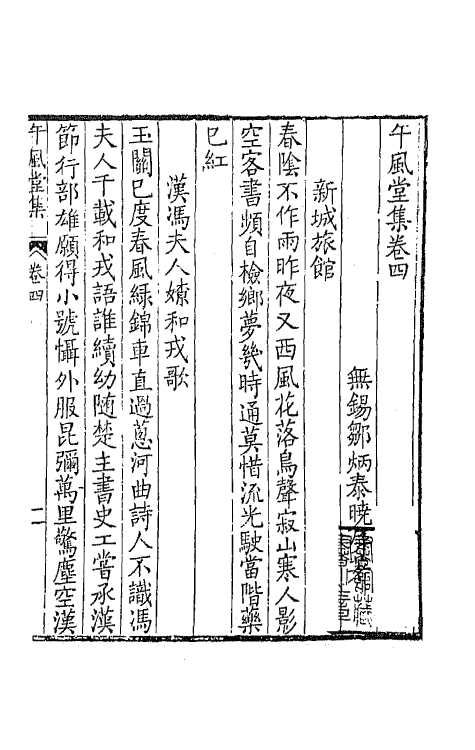 午風堂集卷四
無錫鄒炳泰曉
新城旅館
春陰不作雨昨夜又西風花落鳥聲寂山寒人影
空客書頻自檢鄉夢幾時通莫惜流光駛當階藥
已紅
漢馮夫人嫽和戎歌
玉關已度春風綠錦車直過蔥河曲詩人不識馮
夫人千載和戎語誰續幼隨楚主書史工嘗承漢
節行部雄願得小號懾外服昆彌萬里驚塵空漢
午風堂集 卷四 一